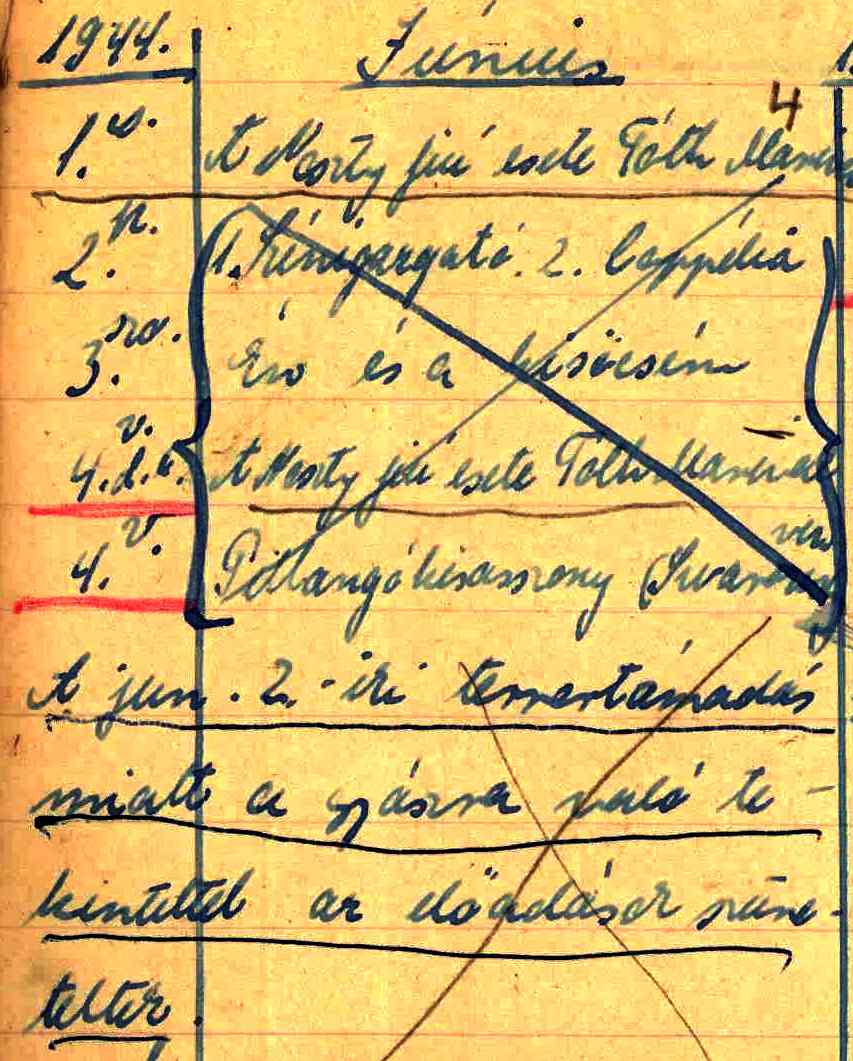 1944. Június
4
1. cs. A Noszty fiú esete Tóth Mari
2. p. 1. Sínigazgató. 2. Coppélia
3. szo. Én és a kisöcsém
4. v. d.u. A Noszty fiú esete Tóth Marival
4. v. Pillangókisasszony
A jun. 2.-iki terrortámadás
miatt a gyászra való te-
kintettel az előadások szüne-
teltek.